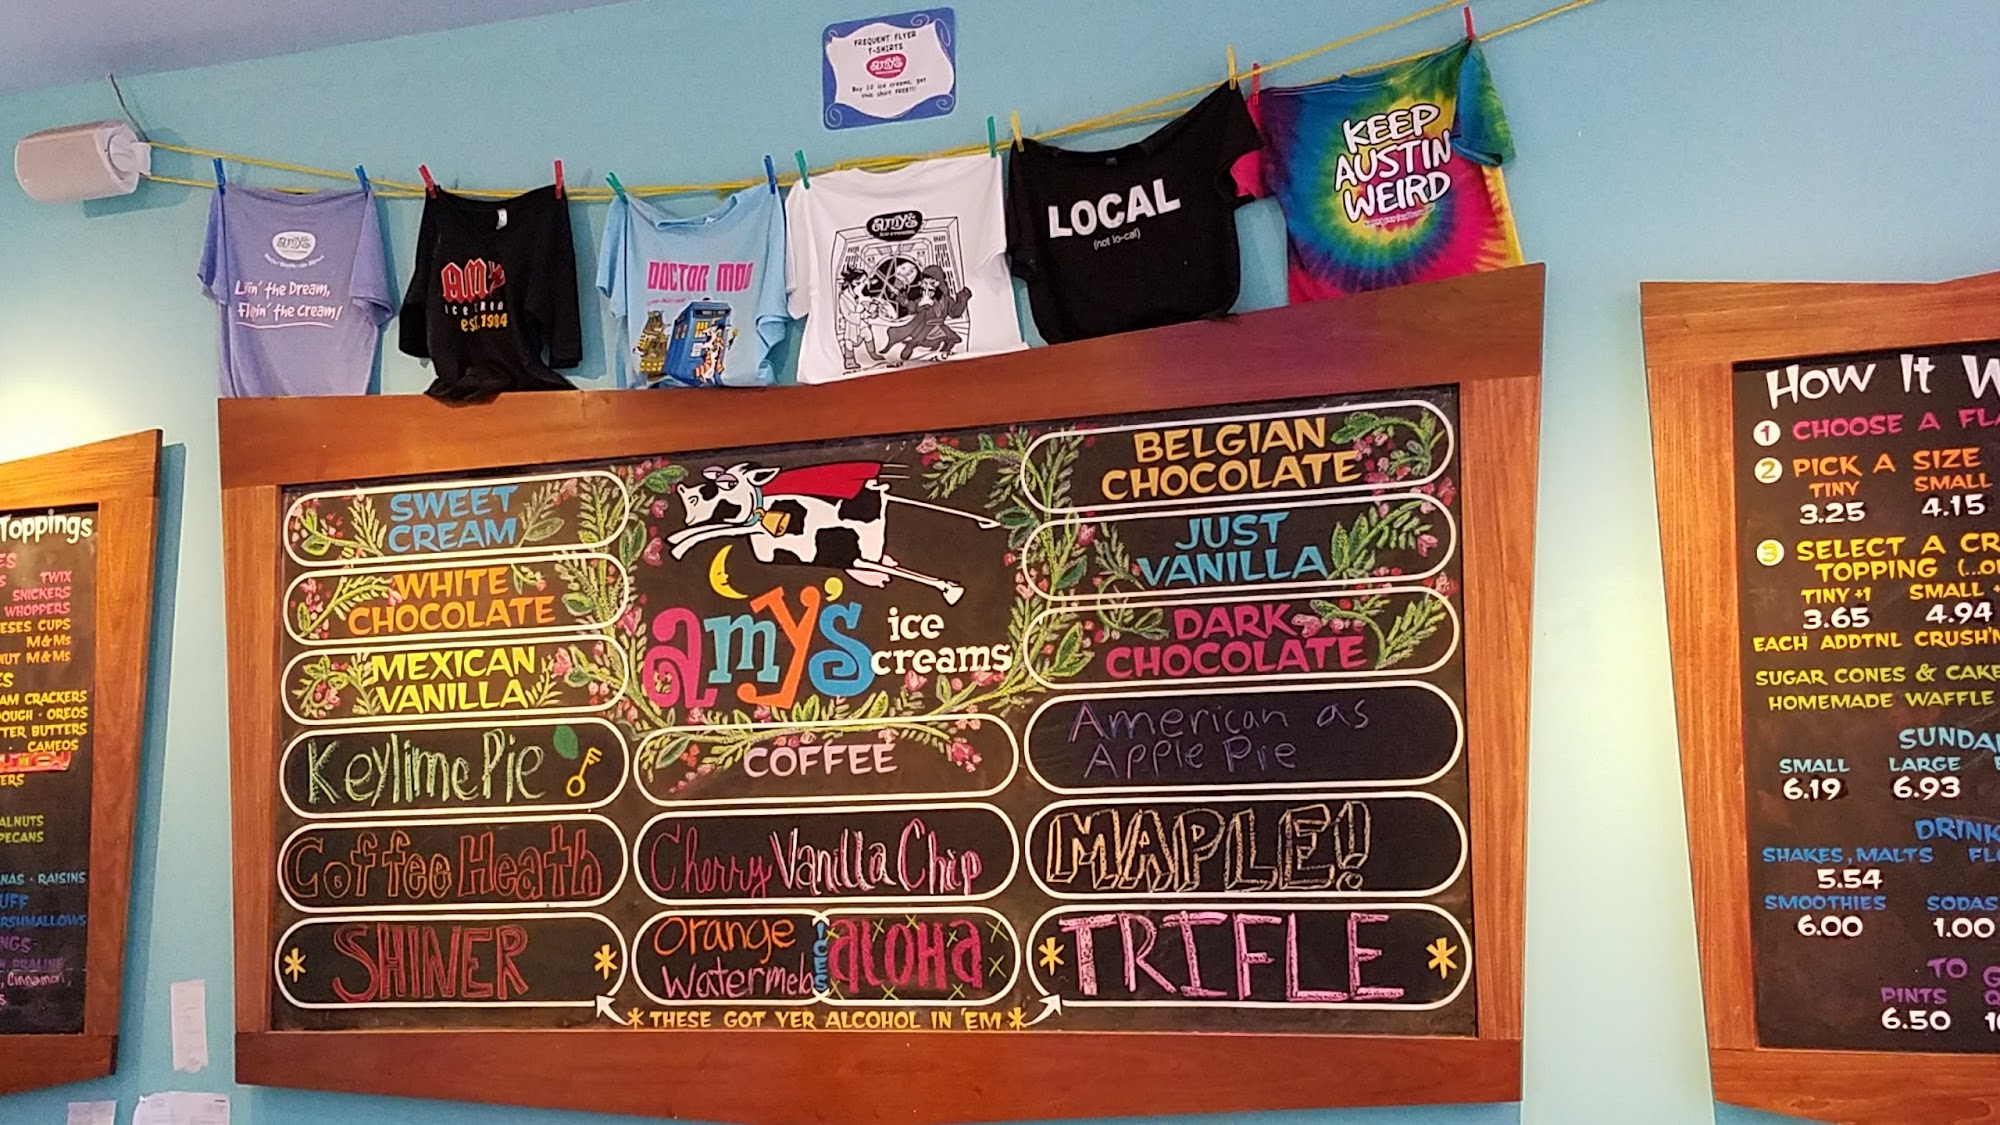 FREQUENT FLYER
T-SHIRTS
amy's
Buy 10 ice creams, get
this shirt FREE!!!
amy's
Livin' the Dream,
Flippin' the Cream!
AMY
ice
est. 1984
DOCTOR MOO
amy's
LOCAL
(not lo-cal)
KEEP
AUSTIN
WEIRD
Toppings
ES
S TWIX
SNICKERS
WHOPPERS
ESES CUPS
M&Ms
NUT M&Ms
ES
AM CRACKERS
DOUGH • OREOS
TTER BUTTERS
• CAMEOS
ERS
ALNUTS
PECANS
NAS • RAISINS
UFF
RSHMALLOWS
NGS
PRALINE
, Cinnamon,
s
SWEET
CREAM
WHITE
CHOCOLATE
MEXICAN
VANILLA
Keylime Pie
Coffee Heath
* SHINER *
amy's ice
creams
COFFEE
Cherry Vanilla Chip
Orange
Watermelo
ICES
aLOHa
BELGIAN
CHOCOLATE
JUST
VANILLA
DARK
CHOCOLATE
American as
Apple Pie
MAPLE!
* TRIFLE *
* THESE GOT YER ALCOHOL IN 'EM *
How It W
1 CHOOSE A FLA
2 PICK A SIZE
TINY SMALL
3.25 4.15
3 SELECT A CR
TOPPING (...O
TINY +1 SMALL +
3.65 4.94
EACH ADDTNL CRUSH'N
SUGAR CONES & CAKE
HOMEMADE WAFFLE
SUNDA
SMALL LARGE
6.19 6.93
DRINK
SHAKES, MALTS FL
5.54
SMOOTHIES SODAS
6.00 1.00
TO G
PINTS Q
6.50 10